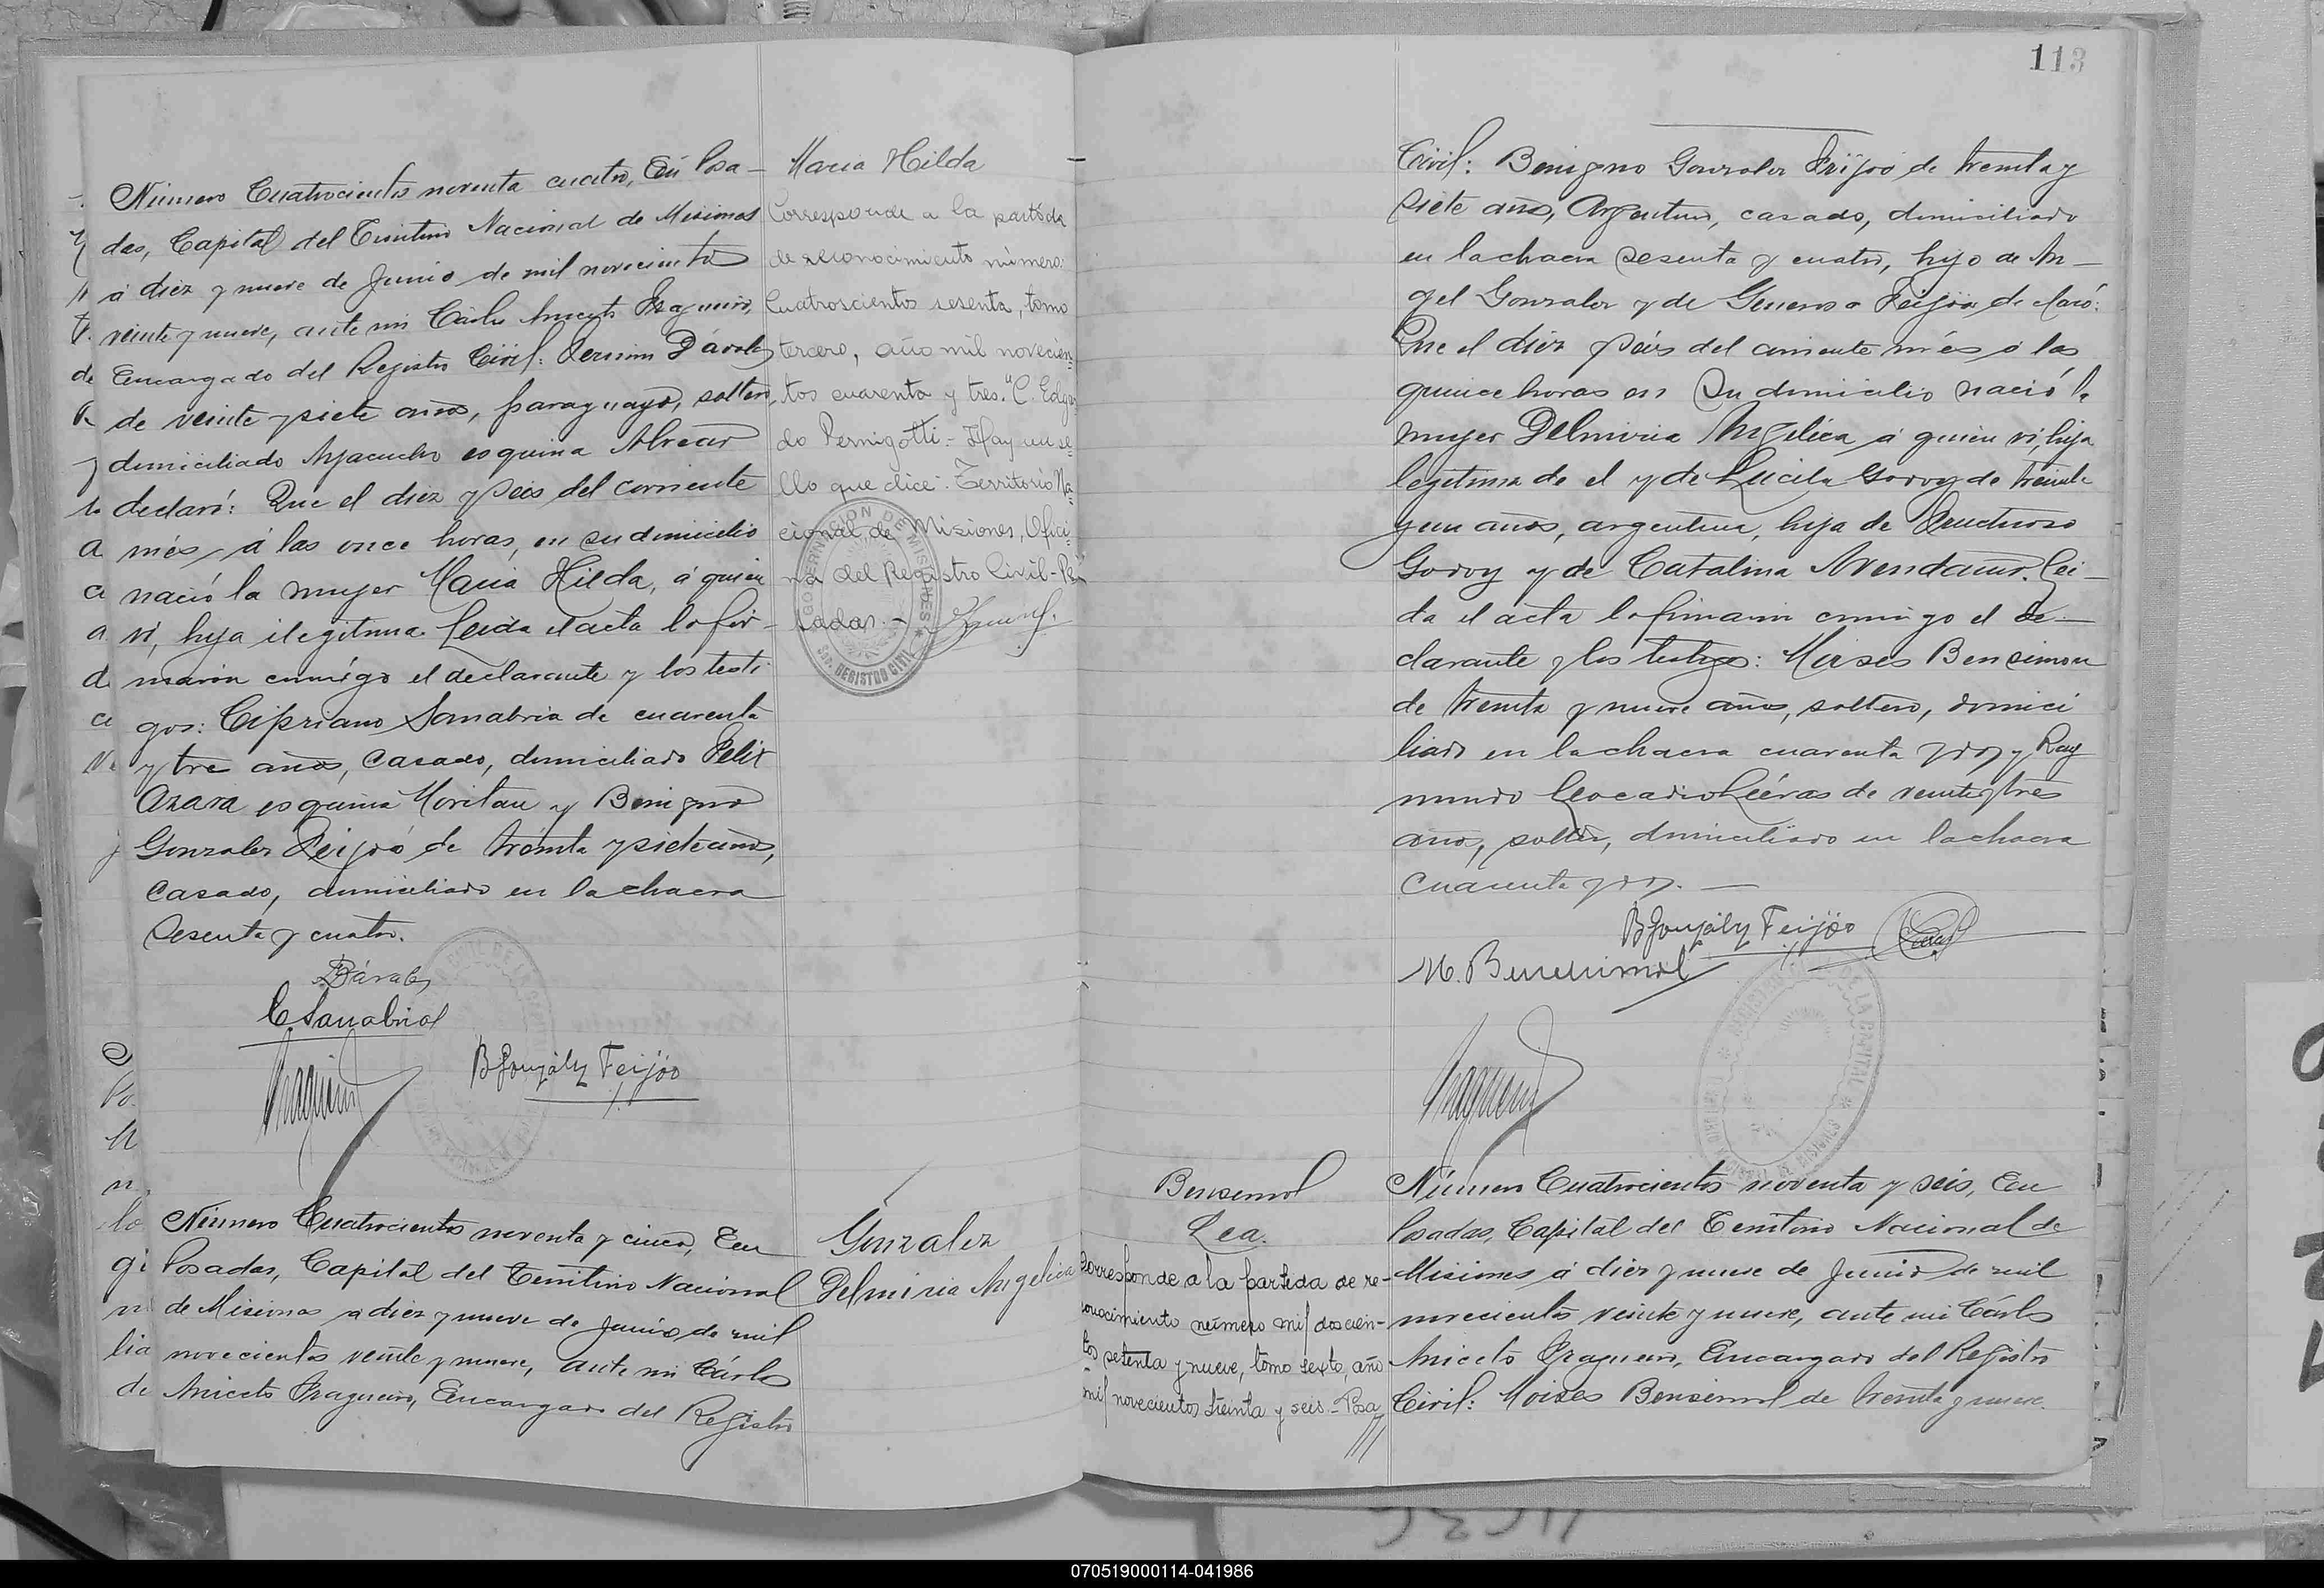 113
Número Cuatrocientos noventa cuatro, En Posa-
das, Capital del Territorio Nacional de Misiones
á diez y nueve de Junio de mil novecientos
veinte y nueve, ante mi Cárlos Aniceto Fragueiro,
Encargado del Registro Civil: Fermin Dávalos
de veinte y siete años, paraguayo, soltero,
domiciliado Ayacucho esquina Alvear
declaró: Que el diez y seis del corriente
més, á las once horas, en su domicilio
nació la mujer Maria Hilda, á quien
vi, hija ilegitima. Leida el acta la fir-
maron conmigo el declarante y los testi-
gos: Cipriano Sanabria de cuarenta
y tres años, casado, domiciliado Felix
Azara esquina Moritan y Benigno
Gonzalez Feijoó de treinta y siete años,
casado, domiciliado en la chacra
Sesenta y cuatro.
Dávalos
C. Sanabria
B Gonzalez Feijóo
Maria Hilda
Corresponde a la partida
de reconocimiento número:
Cuatroscientos sesenta, tomo
tercero, año mil novecien-
tos cuarenta y tres. "C. Edgar-
do Pernigotti.- Hay un se-
llo que dice". Territorio Na-
cional de Misiones, Ofici-
na del Registro Civil-Po-
sadas.-
GOBERNACION DE MISIONES
REGISTRO CIVIL
Número Cuatrocientos noventa y cinco, En
Posadas, Capital del Territorio Nacional
de Misiones a diez y nueve de Junio de mil
novecientos veinte y nueve, ante mi Cárlos
Aniceto Fragueiro, Encargado del Registro
Gonzalez
Delmiria Angelica
Civil: Benigno Gonzalez Feijoó de treinta y
siete años, Argentino, casado, domiciliado
en la chacra sesenta y cuatro, hijo de An-
gel Gonzalez y de Generosa Feijoó, declaró:
Que el diez y seis del corriente més á las
quince horas en su domicilio nació la
mujer Delmiria Angélica á quien vi, hija
legitima de el y de Lucila Godoy de treinta
y un años, argentina, hija de Fructuoso
Godoy y de Catalina Avendaño. Lei-
da el acta la firmaron conmigo el de-
clarante y los testigos: Moises Bensimon
de treinta y nueve años, soltero, domici
liado en la chacra cuarenta y dos y Ray
mundo Leocadio de veinte y tres
años, soltero, domiciliado en la chacra
cuarenta y dos.-
B Gonzalez Feijóo
M. Bensimol
Bensimol
Lea.
Corresponde a la partida de re-
conocimiento número mil doscien-
tos setenta y nueve, tomo sexto, año
mil novecientos treinta y seis - Posa
///
Número Cuatrocientos noventa y seis, En
Posadas, Capital del Territorio Nacional de
Misiones á diez y nueve de Junio de mil
novecientos veinte y nueve, ante mi Cárlos
Aniceto Fragueiro, Encargado del Registro
Civil: Moises Bensimol de treinta y nueve
070519000114-041986